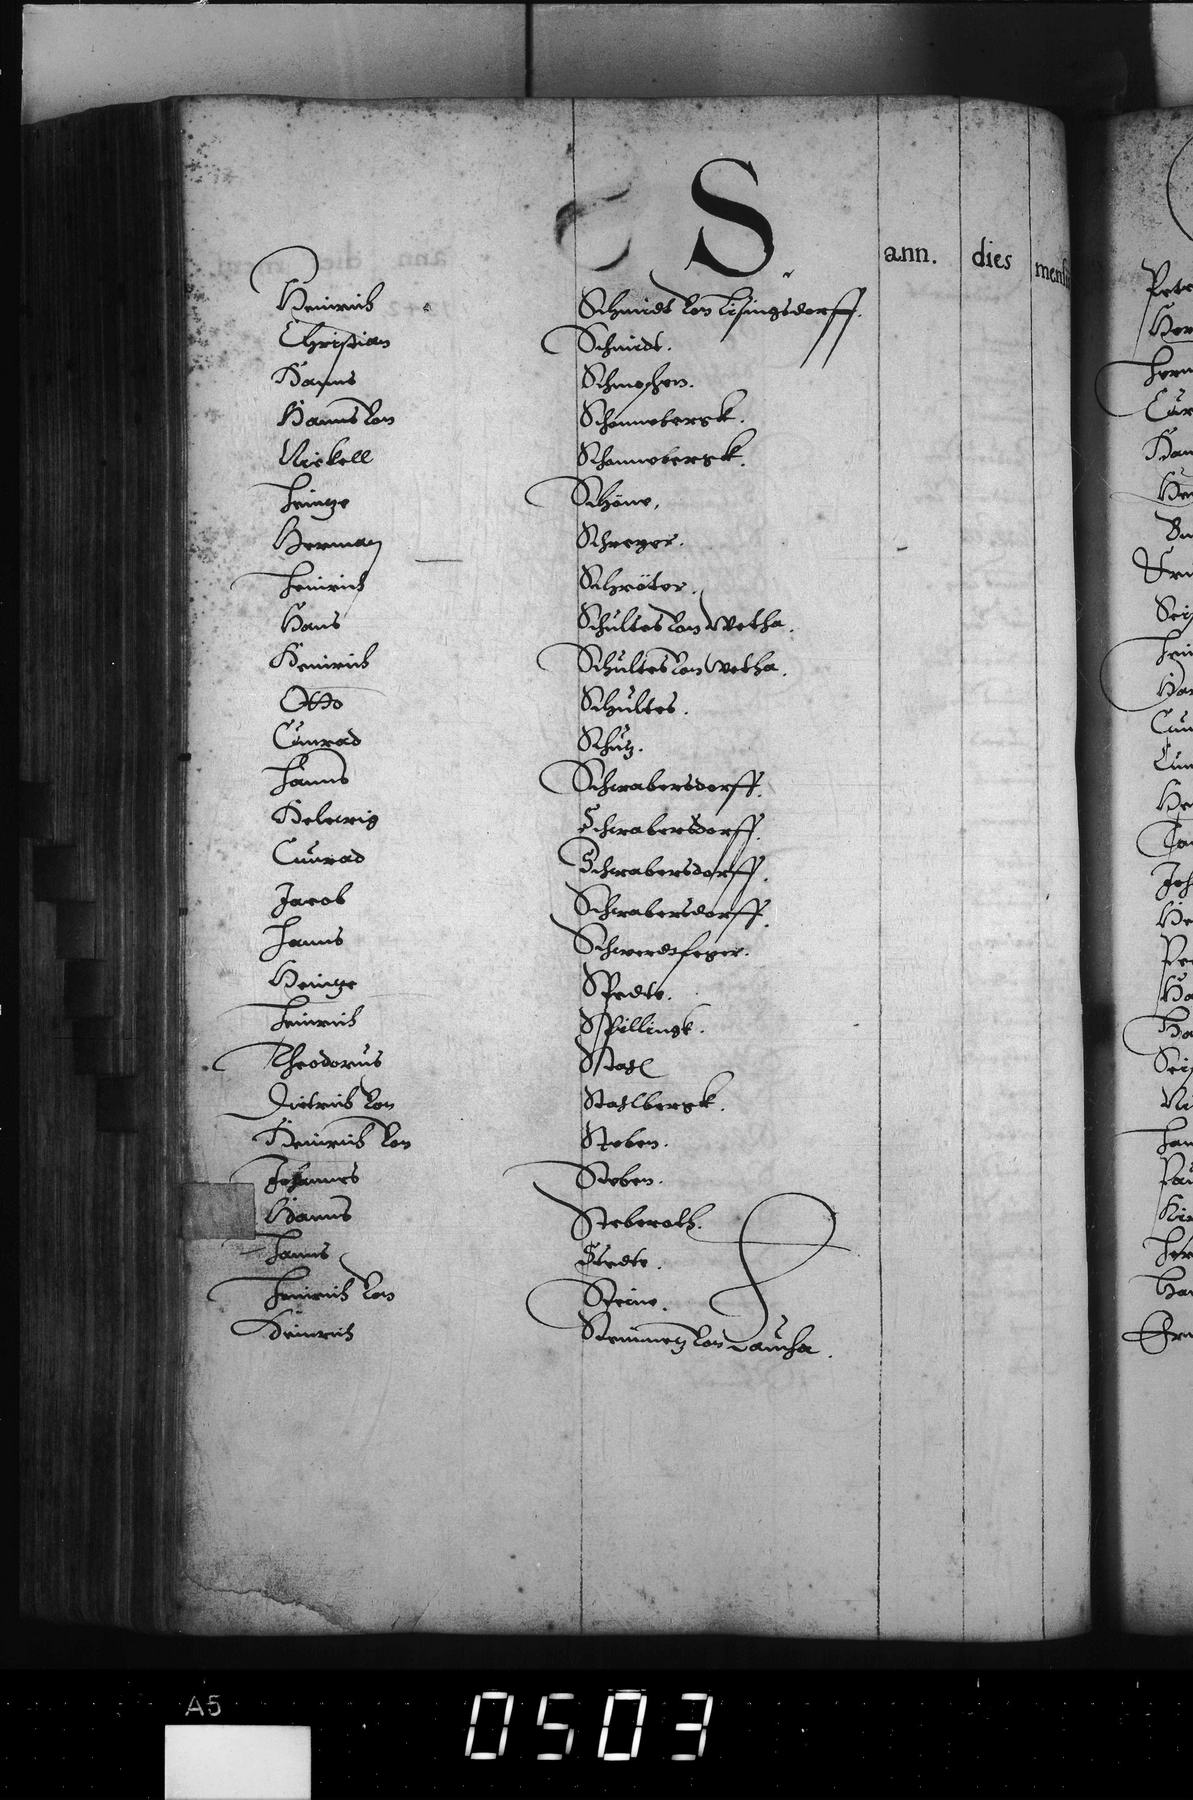 S.
ann. dies mens
Heinrich Schmidt von Eisingsdorff.
Christian Schmidt.
Hanns Schmochen.
Hanns von Schonnebergk.
Nickell Schonnebergk.
Heintze Schöne.
Herman Schreyer.
Heinrich Schröter.
Hans Schultes von Wetha.
Heinrich Schultes von Wetha.
Otto Schultes.
Cunrad Schutz.
Hanns Schwabersdorff.
Helwig Schwabersdorff.
Cunrad Schwabersdorff.
Jacob Schwabersdorff.
Hanns Schwerdtfeger.
Heintze Spedte.
Heinrich Spillingk.
Theodorus Stahl
Dietrich von Stahlbergk.
Heinrich von Stoben.
Johannes Stoben.
Hanns Steberoth.
Hanns Stedte.
Heinrich von Steine.
Heinrich Steinmetz von Laucha.
A5
0503